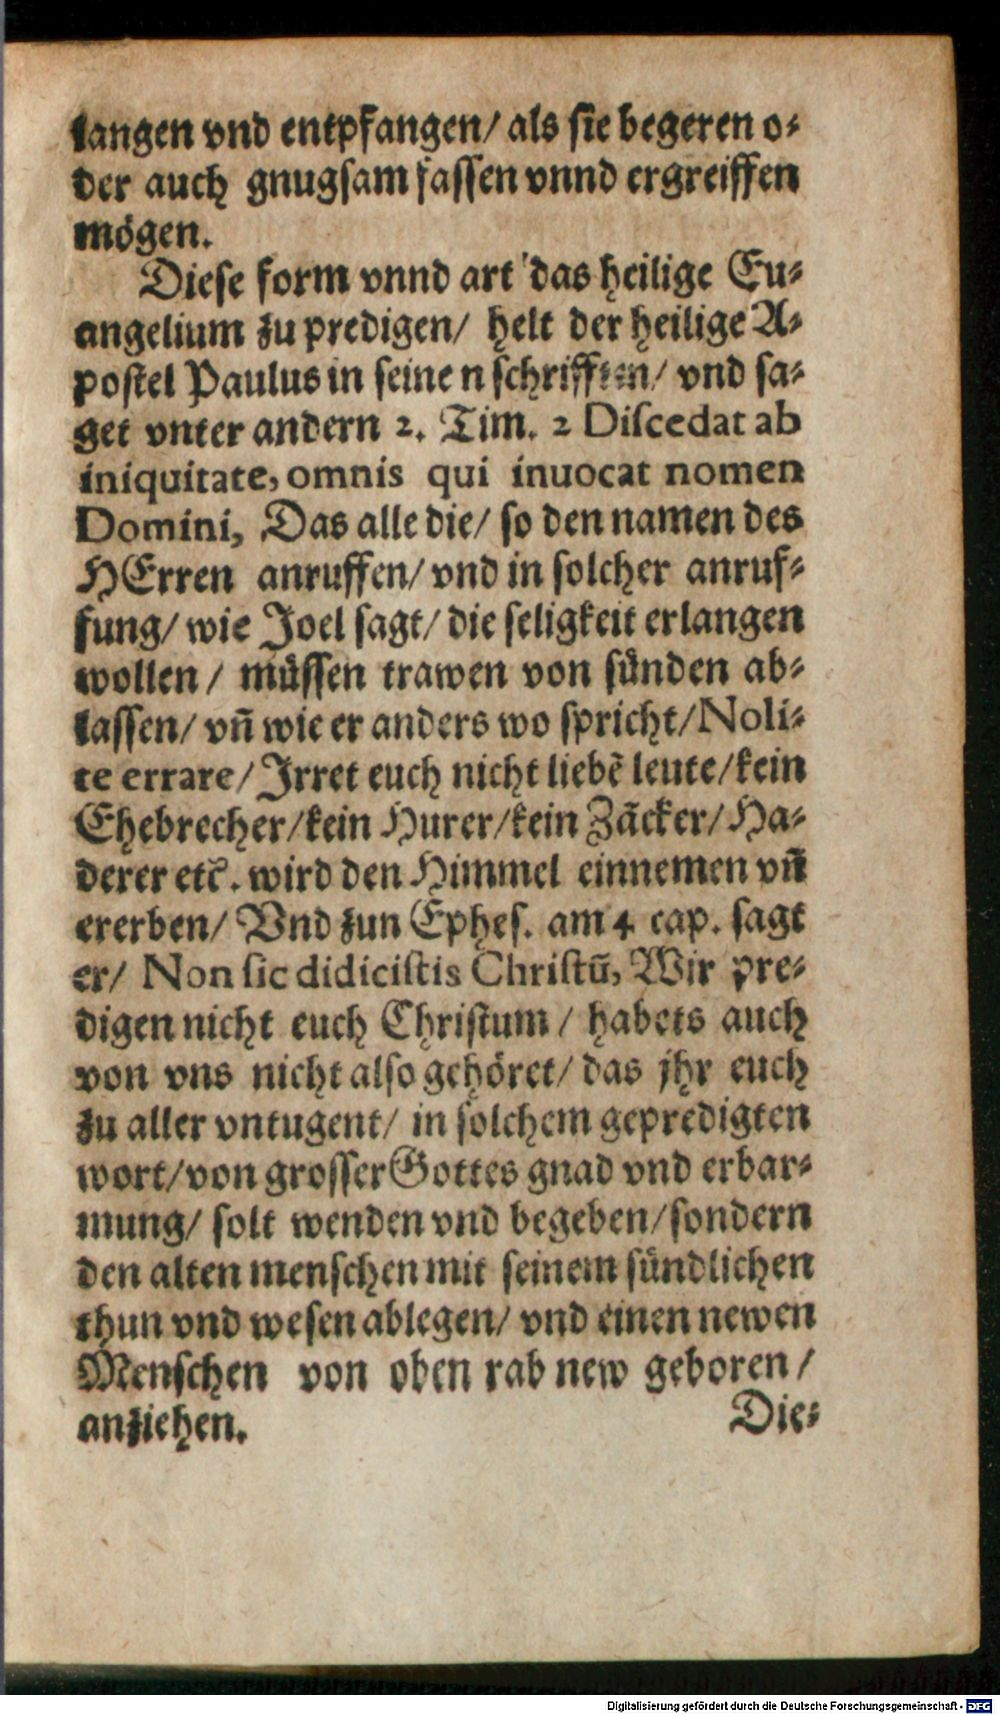 langen vnd entpfangen/ als sie begeren o⸗
der auch gnugsam fassen vnnd ergreiffen
mögen.
Diese form vnnd art das heilige Eu⸗
angelium zu predigen/ helt der heilige A⸗
postel Paulus in seinen schrifften/ vnd sa⸗
get vnter andern 2. Tim. 2 Discedat ab
iniquitate, omnis qui inuocat nomen
Domini, Das alle die/ so den namen des
HErren anruffen/ vnd in solcher anruf⸗
fung/ wie Joel sagt/ die seligkeit erlangen
wollen/ müssen trawen von sünden ab⸗
lassen/ vn̄ wie er anders wo spricht/ Noli⸗
te errare/ Jrret euch nicht liebē leute/ kein
Ehebrecher/ kein Hurer/ kein Zäcker/ Ha⸗
derer etc. wird den Himmel einnemen vn̄
ererben/ Vnd zun Ephes. am 4 cap. sagt
er/ Non sic didicistis Christū, Wir pre⸗
digen nicht euch Christum/ habets auch
von vns nicht also gehöret/ das jhr euch
zu aller vntugent/ in solchem gepredigten
wort/ von grosser Gottes gnad vnd erbar⸗
mung/ solt wenden vnd begeben/ sondern
den alten menschen mit seinem sündlichen
thun vnd wesen ablegen/ vnd einen newen
Menschen von oben rab new geboren/
anziehen.
Die⸗
Digitalisierung gefördert durch die Deutsche Forschungsgemeinschaft - DFG